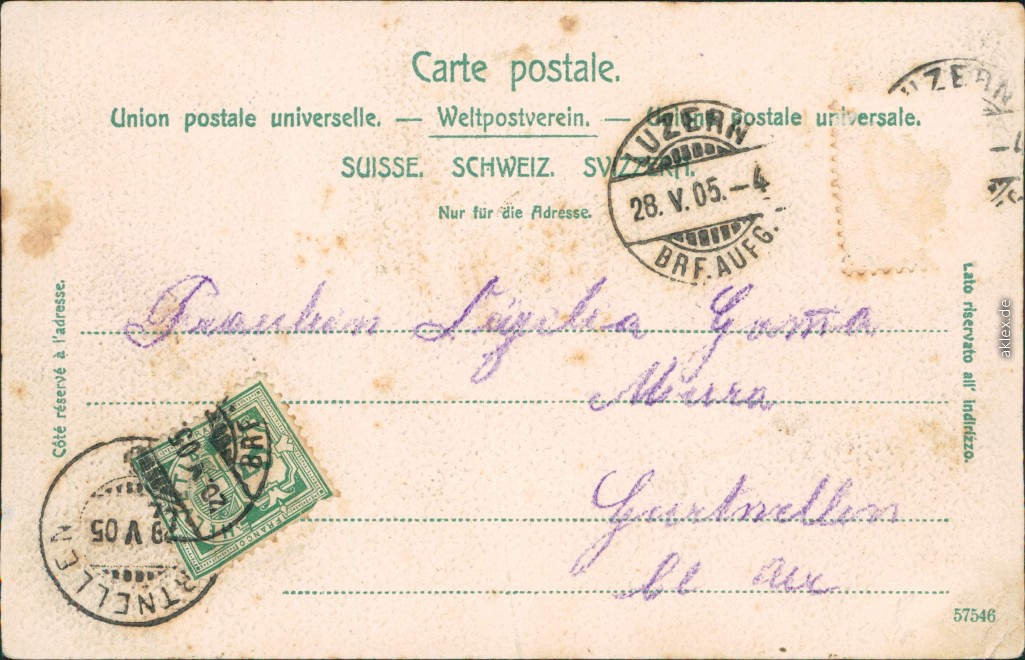 Carte postale.
Union postale universelle. — Weltpostverein. — Unione postale universale.
SUISSE. SCHWEIZ. SVIZZERA.
Nur für die Adresse.
LUZERN
28. V. 05. – 4
BRF. AUFG.
UZERN
Côté réservé à l'adresse.
Lato riservato all' indirizzo.
Fraulein Gamma
Gurtnellen
FRANCO
BRF.
RTNELLEN
V 05
57546
aklex.de